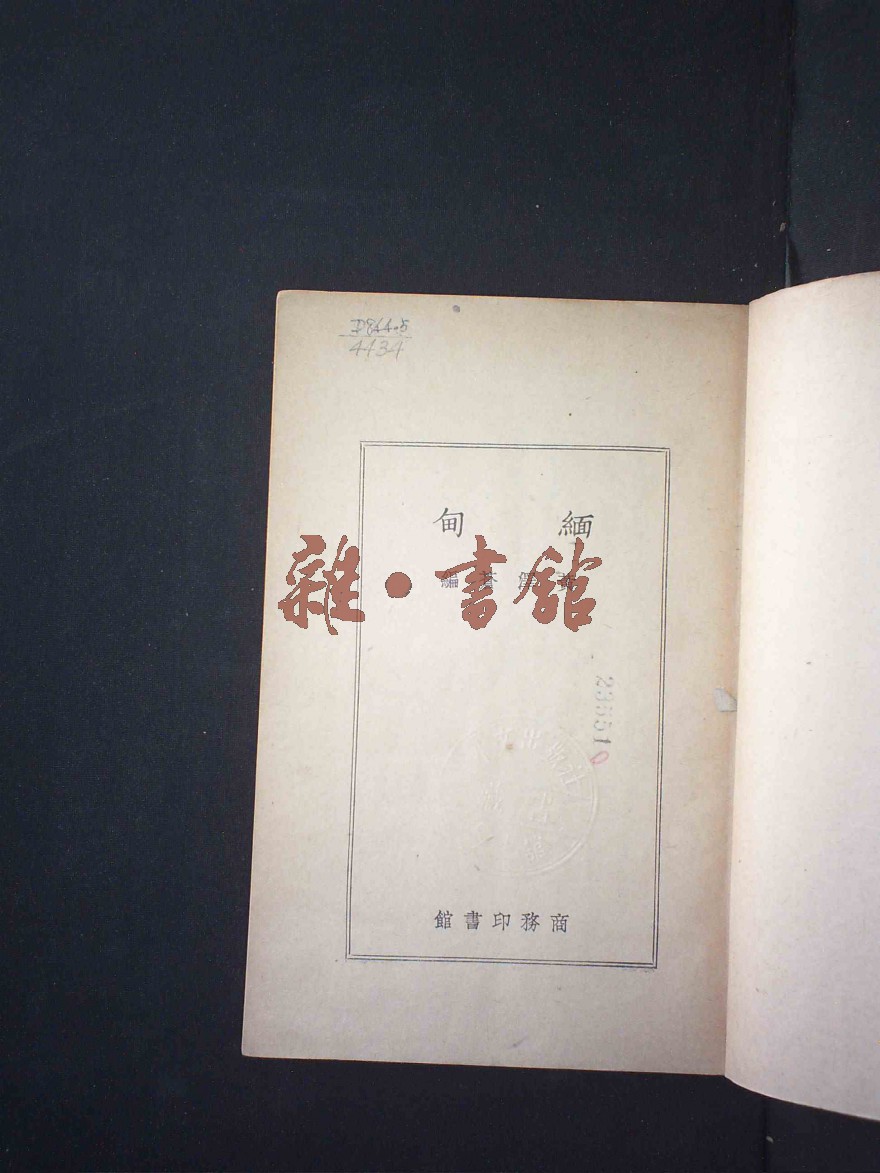 D844.5
4434
緬甸
蒼編
雜·書館
233510
出版社
商務印書館